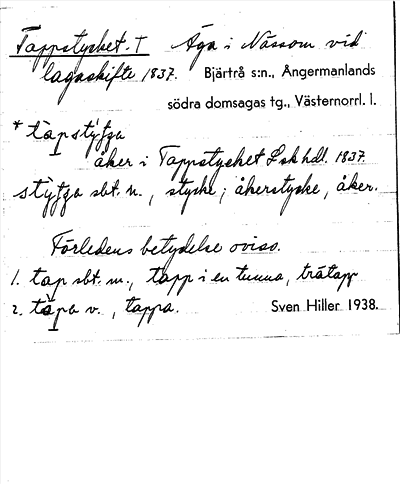 Tappstycket. T Äga i Nässom vid
lagaskifte 1837. Bjärtrå s:n., Ångermanlands
södra domsagas tg., Västernorrl. l.
* tàpstyʃʃa
åker i Tappstycket Lskhdl. 1837.
stỳʃʃa sbt. n., stycke; åkerstycke, åker.
Förledens betydelse oviss.
1. tap sbt. m., tapp i en tunna, trätapp
2. tàpa v., tappa. Sven Hiller 1938.